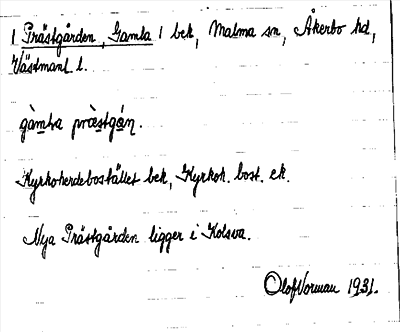 1 Prästgården, Gamla 1 bek, Malma sn, Åkerbo hd,
Västmanl. l.
gàmla præstgán.
Kyrkoherdebostället bek, Kyrkoh. bost. ek.
Nya Prästgården ligger i Kolsva.
Olof Norman 1931.